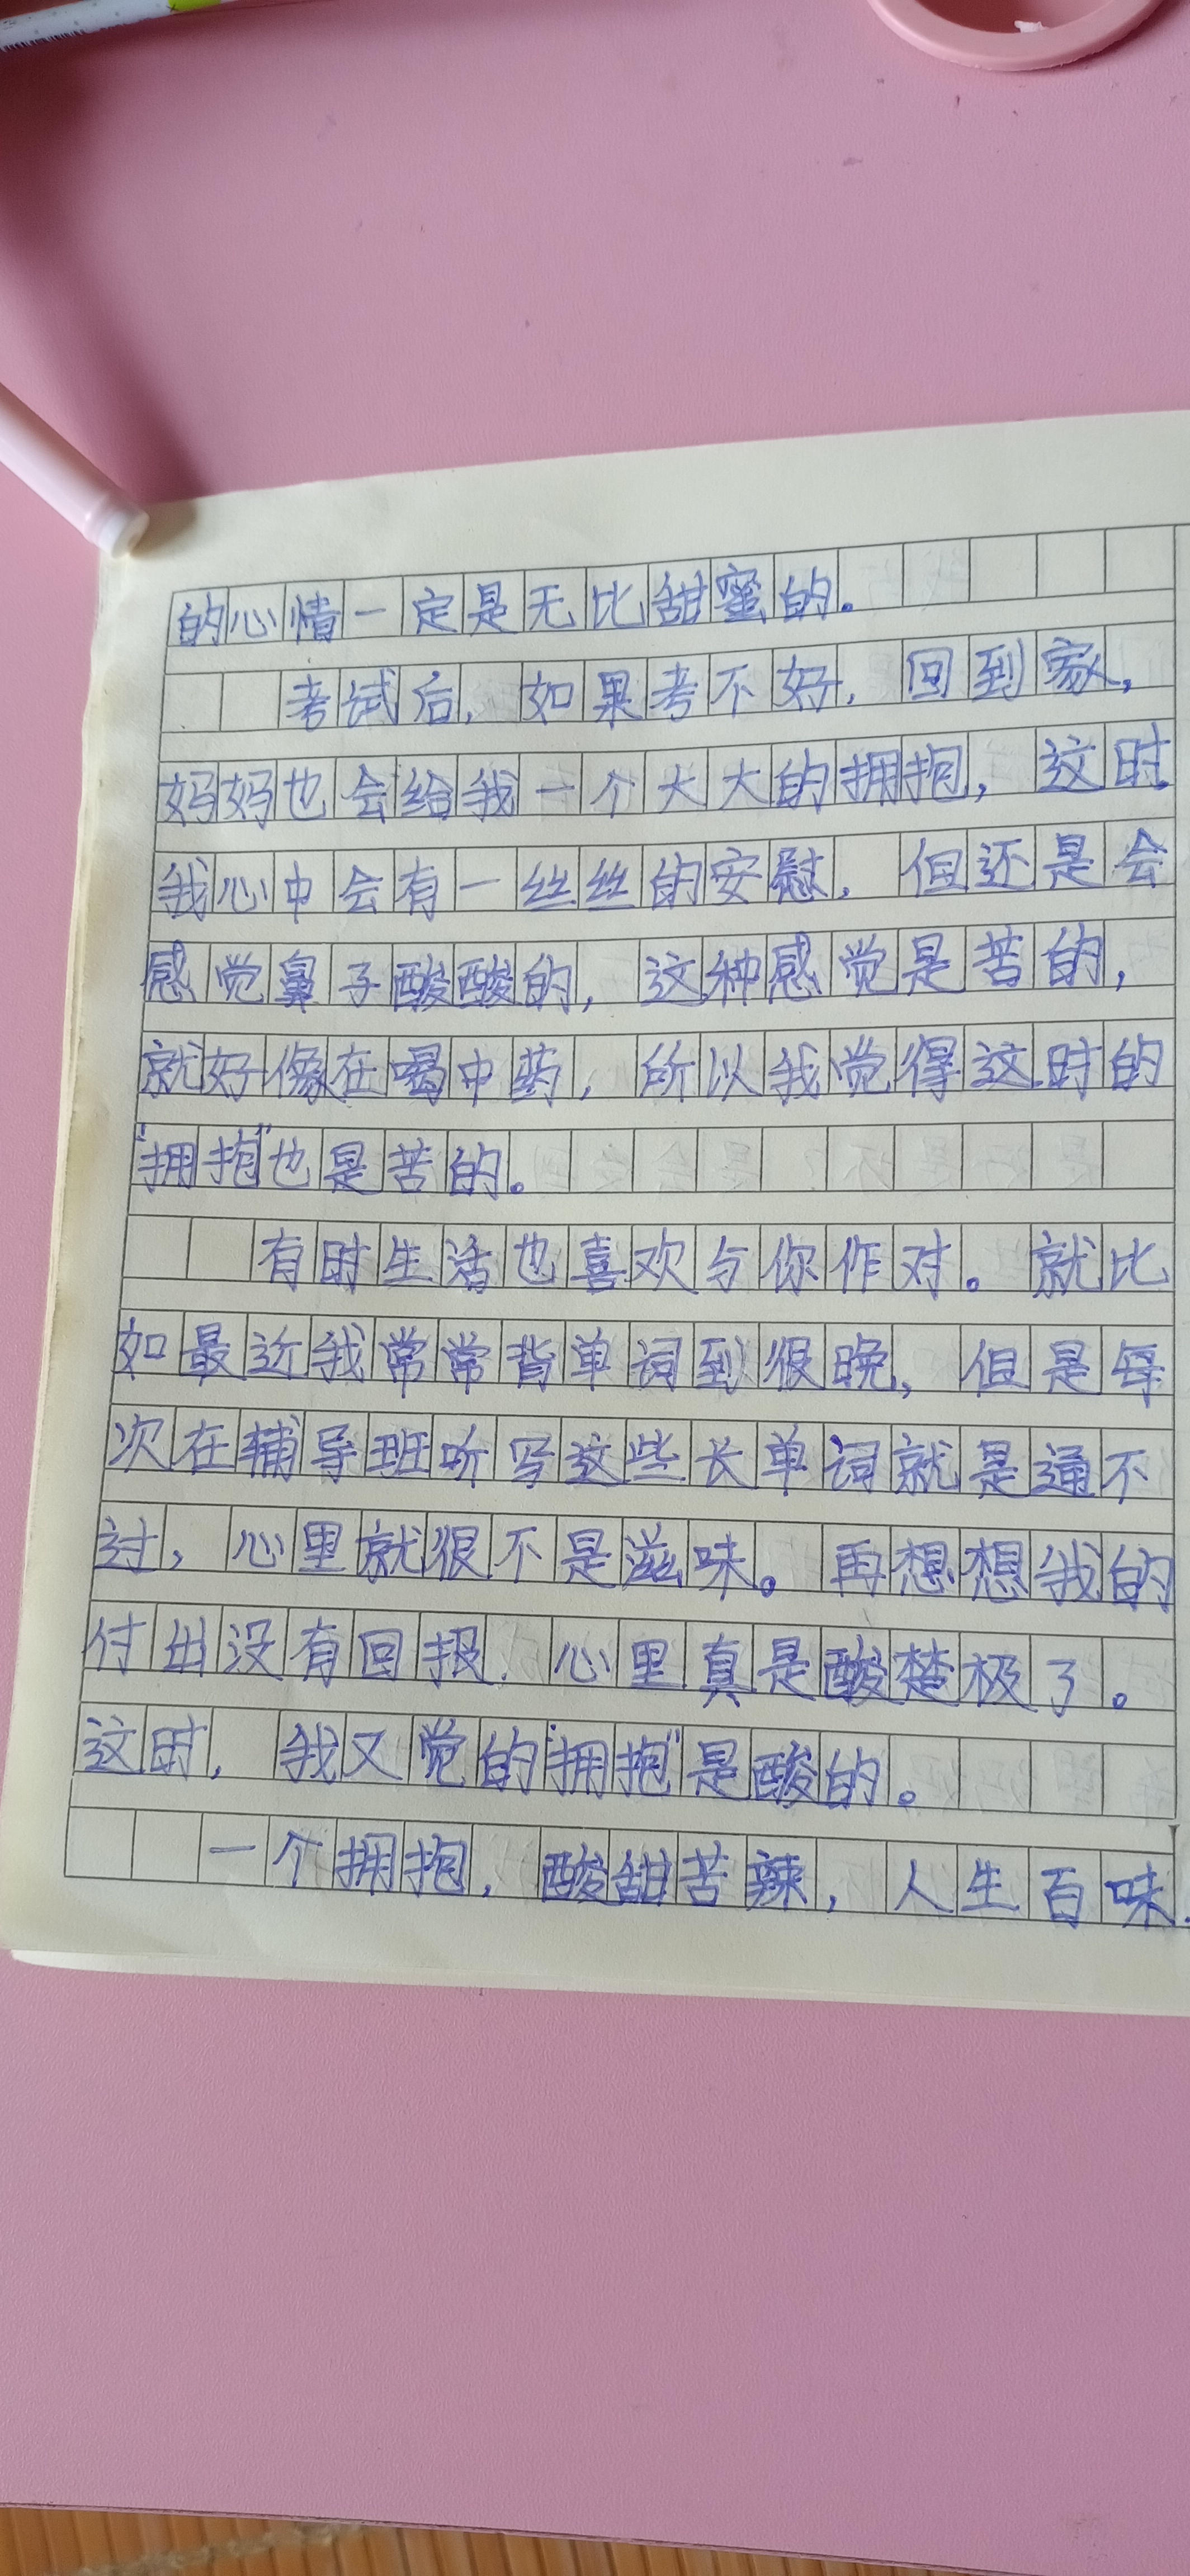 的心情一定是无比甜蜜的。
考试后，如果考不好，回到家，
妈妈也会给我一个大大的拥抱，这时
我心中会有一丝丝的安慰，但还是会
感觉鼻子酸酸的，这种感觉是苦的，
就好像在喝中药，所以我觉得这时的
“拥抱”也是苦的。
有时生活也喜欢与你作对。就比
如最近我常常背单词到很晚，但是每
次在辅导班听写这些长单词就是通不
过，心里就很不是滋味。再想想我的
付出没有回报，心里真是酸楚极了。
这时，我又觉的“拥抱”是酸的。
一个拥抱，酸甜苦辣，人生百味.